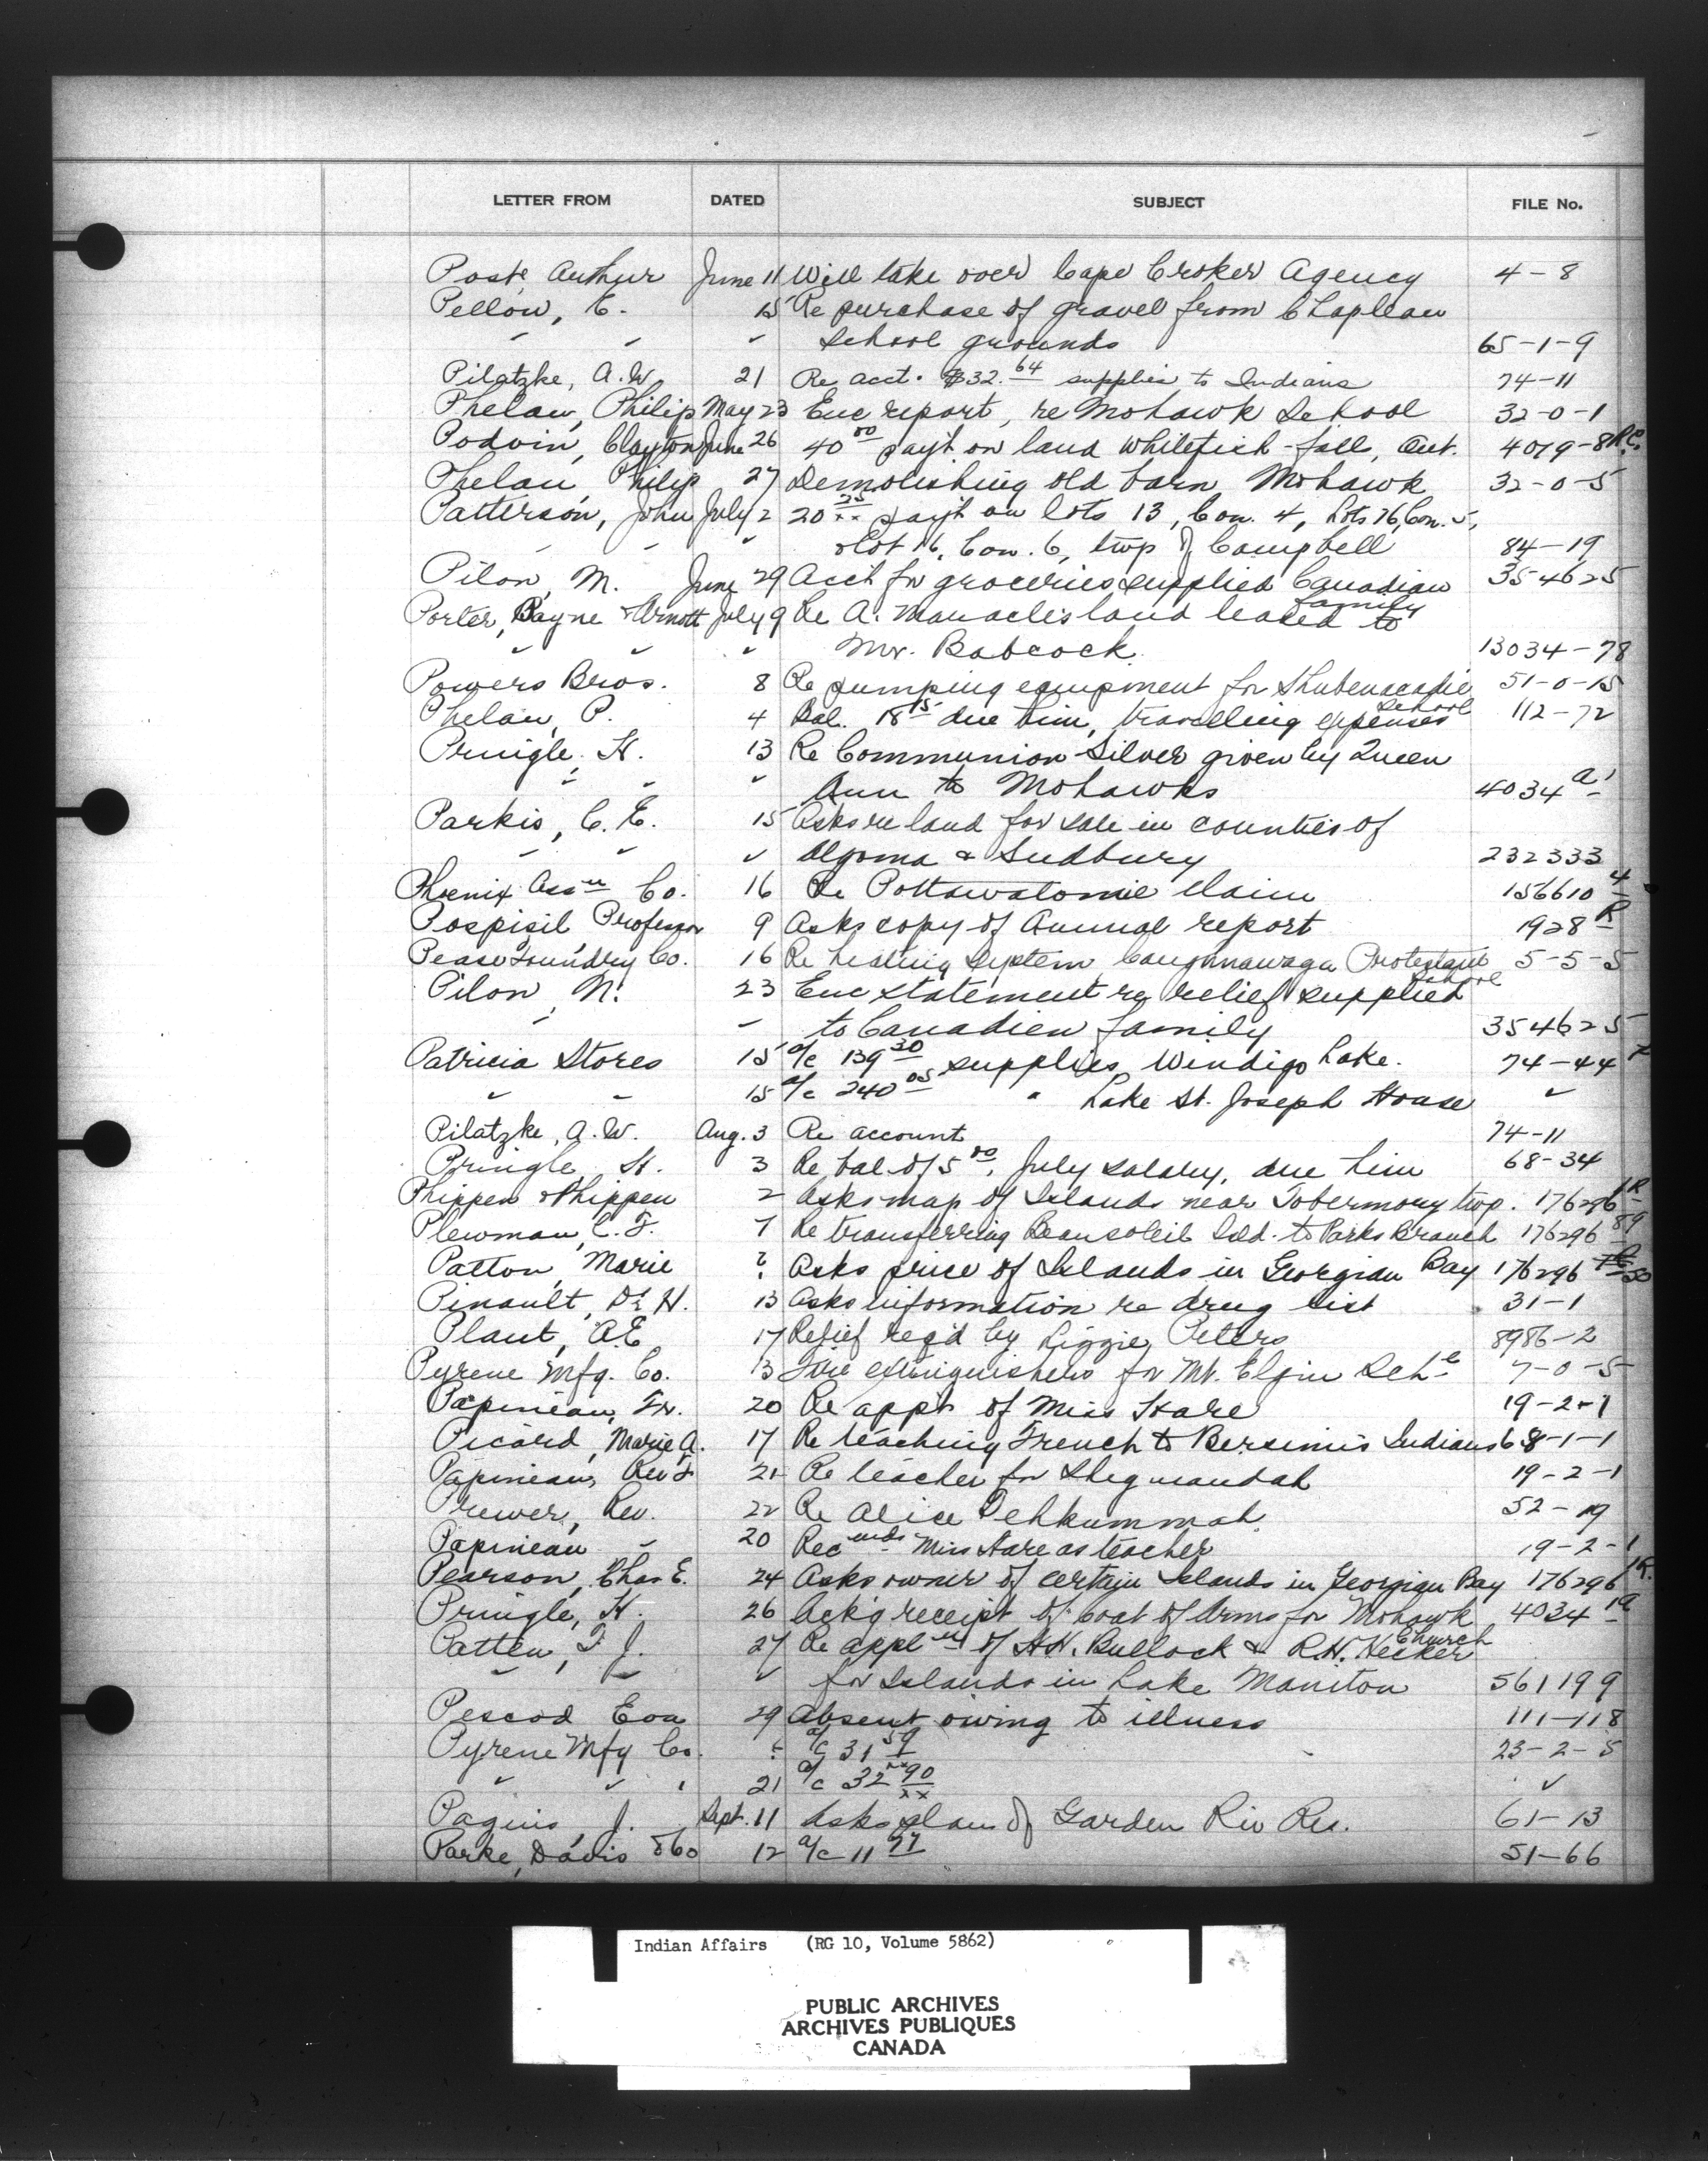 LETTER FROM DATED SUBJECT FILE No.
Post, Arthur June 11 Will take over Cape Croker Agency 4-8
Pellow, C. 15 Re purchase of gravel from Chapleau
" " " School grounds 65-1-9
Pilatzke, A.W. 21 Re acct. $32.64 supplies to Indians 74-11
Phelan, Philip May 23 Enc report, re Mohawk School 32-0-1
Podvin, Clayton June 26 40 00 payt. on land Whitefish falls, Ont. 4079-8
Phelan, Philip 27 Demolishing old barn Mohawk 32-0-5
Patterson, John July 2 20 25 xx payt on lots 13, Con. 4, Lots 16, Con. 5,
" " " & Lot 16, Con. 6, twp of Campbell 84-19
Pilon, M. June 29 Acct for groceries supplied Canadien family 354625
Porter, Payne & Arnott July 9 Re A. Manacle's land leased to
" " " Mr. Babcock. 13034-78
Powers Bros. 8 Re pumping equipment for Shubenacadie School 51-0-15
Phelan, P. 4 Bal. 18 15 due him, travelling expenses 112-72
Pringle, H. 13 Re Communion Silver given by Queen
" " " Ann to Mohawks 4034 A1
Parkis, C. E. 15 Asks re land for sale in counties of
" " " Algoma & Sudbury 232333
Phoenix Assce Co. 16 Re Pottawatomie claim 156610 4
Pospisil, Professor 9 Asks copy of Annual report 1928 R
Pease Foundry Co. 16 Re heating system Caughnawaga Protestant School 5-5-5
Pilon, N. 23 Enc statement re relief supplied
" " to Canadien family 354625
Patricia Stores 15 a/c 139 30 supplies Windigo Lake. 74-44
" " 15 a/c 240 05 " Lake St. Joseph House "
Pilatzke, A.W. Aug. 3 Re account 74-11
Pringle, H. 3 Re bal of 5 00, July salary, due him 68-34
Phippen & Phippen 2 Asks map of Islands near Tobermory twp. 176296 1R
Plewman, C. F. 7 Re transferring Beausoleil Isld. to Parks Branch 176296 89
Patton, Marie ? Asks price of Islands in Georgian Bay 176296
Pinault, Dr. H. 13 Asks information re drug list 31-1
Plant, A.E. 17 Relief req'd by Lizzie Peters 8986-2
Pyrene Mfg. Co. 13 Fire extinguishers for Mt. Elgin Schl 7-0-5
Papineau, Fr. 20 Re appt of Miss Hare 19-2-1
Picard, Marie A. 17 Re teaching French to Bersimis Indians 68-1-1
Papineau, Rev F 21 Re teacher for Sheguiandah 19-2-1
Prewer, Rev. 22 Re Alice Debkummah 52-19
Papineau " 20 Recmds Miss Hare as teacher 19-2-1
Pearson, Chas E. 24 Asks owner of certain Islands in Georgian Bay 176296 1R.
Pringle, H. 26 Ack'g receipt of Coat of Arms for Mohawk Church 4034 1A
Patten, F. J. 27 Re appln of H.H. Bullock & R.H. Hecker
" " " for Islands in Lake Manitou 561199
Pescod Eva 29 Absent owing to illness 111-118
Pyrene Mfg Co. ? a/c 31 59 23-2-5
" " " 21 a/c 32 90 xx "
Paquis, J. Sept. 11 Asks plan of Garden Riv Res. 61-13
Parke, Davis & Co 12 a/c 11 77 51-66
Indian Affairs (RG 10, Volume 5862)
PUBLIC ARCHIVES
ARCHIVES PUBLIQUES
CANADA